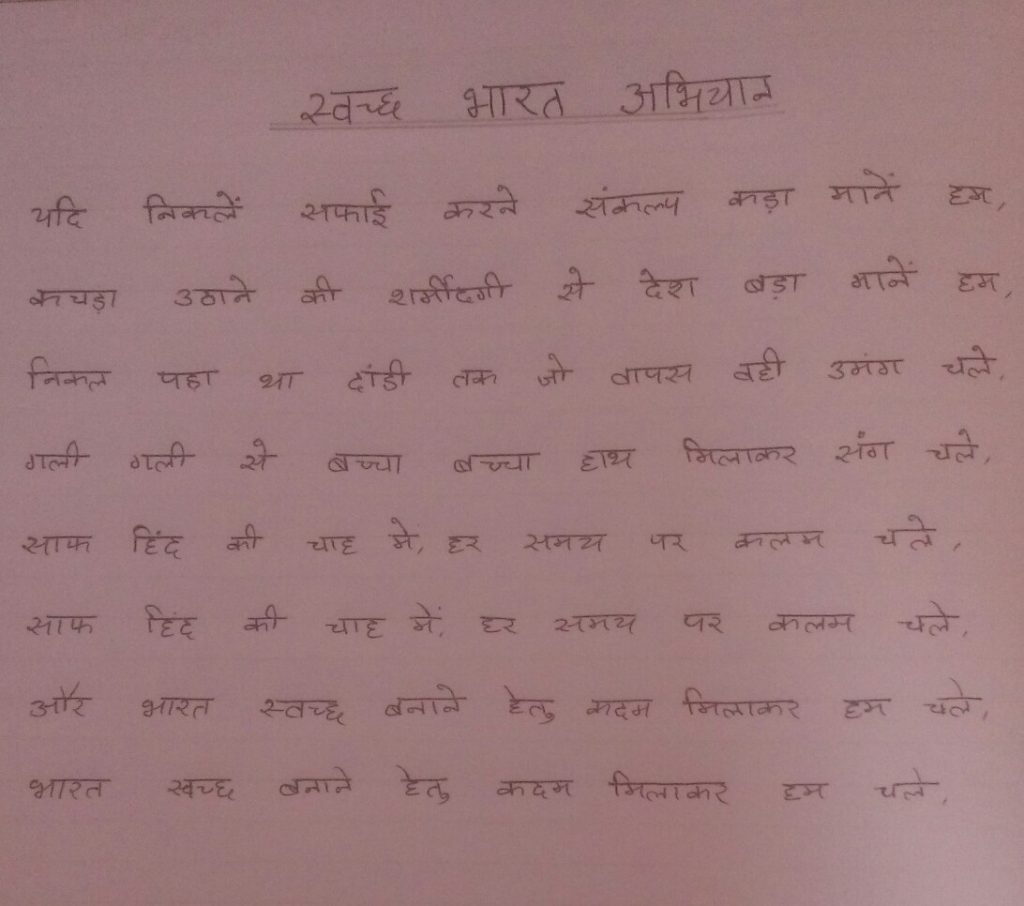 स्वच्छ भारत अभियान
यदि निकलें सफाई करने संकल्प कड़ा मानें हम,
कचड़ा उठाने की शर्मीदगी से देश बड़ा मानें हम,
निकल पड़ा था दांडी तक जो वापस वही उमंग चले,
गली गली से बच्चा बच्चा हाथ मिलाकर संग चले,
साफ हिंद की चाह मे, हर समय पर कलम चले,
साफ हिंद की चाह में, हर समय पर कलम चले,
और भारत स्वच्छ बनाने हेतु कदम मिलाकर हम चले,
भारत स्वच्छ बनाने हेतु कदम मिलाकर हम चले,